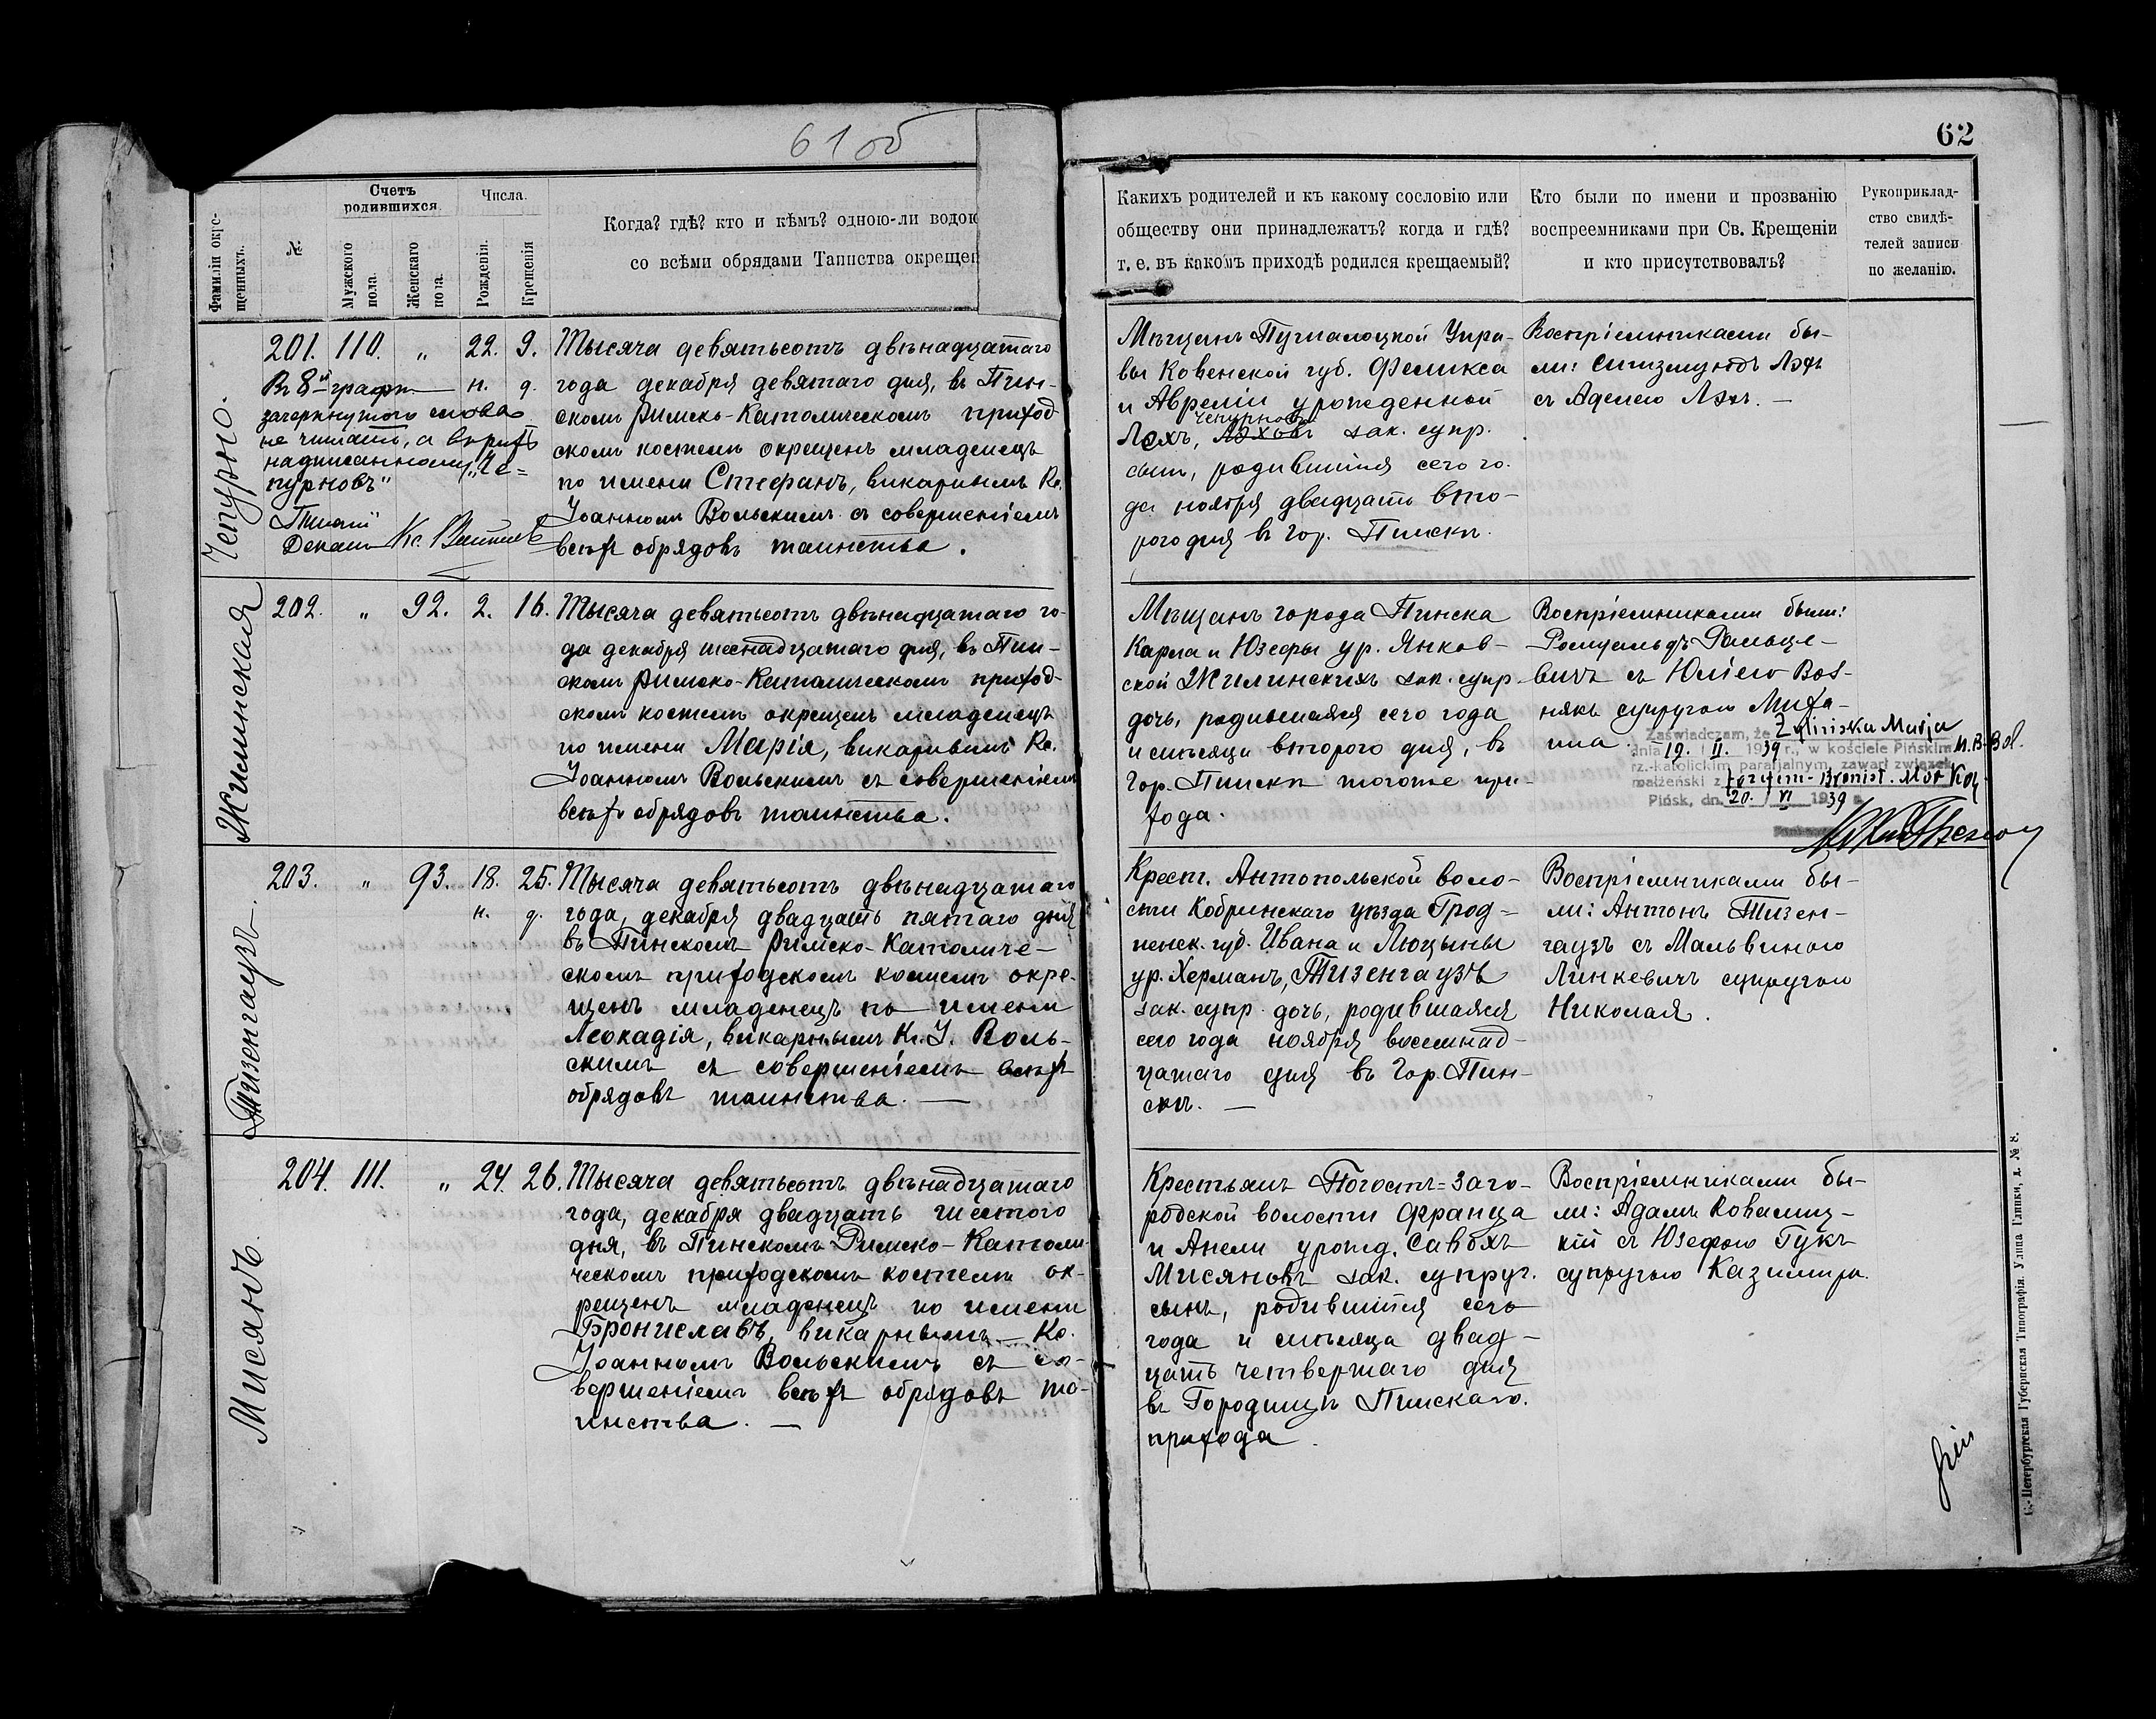 61 об
62
Фамиліи окре-
щенныхъ.
№
Счетъ
родившихся.
Мужского
пола.
Женскаго
пола.
Числа.
Рожденія.
Крещенія
Когда? гдѣ? кто и кѣмъ? одною-ли водою
со всѣми обрядами Таинства окрещен
Какихъ родителей и къ какому сословію или
обществу они принадлежатъ? когда и гдѣ?
т. е. въ какомъ приходѣ родился крещаемый?
Кто были по имени и прозванію
воспреемниками при Св. Крещеніи
и кто присутствовалъ?
Рукоприклад-
ство свидѣ-
телей записи
по желанію.
Чепурно.
201. 110. „ 22. 9.
н. д.
Въ 8й графѣ
зачеркнутого слова
не читать, а вѣрить
надписанному „Че=
пурновъ"
Деканъ Кс.
Тысяча девятьсотъ двѣнадцатаго
года декабря девятаго дня, въ Пин-
скомъ Римско-Католическомъ приход
скомъ костелѣ окрещенъ младенецъ
по имени Стефанъ, викарнымъ Кс.
Іоанномъ Вольскимъ съ совершеніемъ
всѣхъ обрядовъ таинства.
Мѣщанъ Управы
вы Ковенской губ. Феликса
и Авреліи урожденной
Чепурновъ
Лэхъ, Лэховъ зак. супр.
сынъ, родившійся сего го-
да ноября двадцать вто-
рого дня въ гор. Пинскѣ.
Воспріемниками бы-
ли: Сигизмундъ Лэхъ
съ Аделею Лэхъ. —
Жилинская
202. „ 92. 2. 16.
Тысяча девятьсотъ двѣнадцатаго го-
да декабря шестнадцатаго дня, въ Пин-
скомъ Римско-Католическомъ приход-
скомъ костелѣ окрещенъ младенецъ
по имени Марія, викарнымъ Кс.
Іоанномъ Вольскимъ съ совершеніемъ
всѣхъ обрядовъ таинства.
Мѣщанъ города Пинска
Карла и Юзефы ур. Янков-
ской Жилинскихъ зак. супр.
дочь, родившаяся сего года
и мѣсяца второго дня, въ
гор. Пинскѣ тогоже при-
хода.
Воспріемниками были:
Ромуальдъ
вичъ съ Юліею Воз-
някъ супругою Миха-
ила.
Zaświadczam, że Żylińska Marja
dnia 19. II. 1939 r., w kościele Pińskim
rz.-katolickim parafjalnym, zawarł związek
małżeński z
Pińsk, dn. 20. VI 1939 r.
Тизенгаузъ.
203. „ 93. 18. 25.
н. д.
Тысяча девятьсотъ двѣнадцатаго
года, декабря двадцать пятаго дня
въ Пинскомъ Римско-Католиче-
скомъ приходскомъ костелѣ окре-
щенъ младенецъ по имени
Леокадія, викарнымъ Кс. І. Воль-
скимъ съ совершеніемъ всѣхъ
обрядовъ таинства. —
Крест. Антопольской воло-
сти Кобринскаго уѣзда Грод=
ненск. губ. Ивана и Люцыны
ур. Херманъ, Тизенгаузъ
зак. супр. дочь, родившаяся
сего года ноября восемнад-
цатаго дня въ гор. Пин-
скѣ. —
Воспріемниками бы-
ли: Антонъ Тизен-
гаузъ съ Мальвиною
Линкевичъ супругою
Николая.
Мисянъ.
204. 111. „ 24. 26.
Тысяча девятьсотъ двѣнадцатаго
года, декабря двадцать шестого
дня, въ Пинскомъ Римско-Католи-
ческомъ приходскомъ костелѣ ок-
рещенъ младенецъ по имени
Брониславъ, викарнымъ Кс.
Іоанномъ Вольскимъ съ со-
вершеніемъ всѣхъ обрядовъ та-
инства. —
Крестьянъ Погостъ=Заго-
родской волости Франца
и Анели урожд. Саввохъ
Мисяновъ зак. супруг.
сынъ, родившійся сего
года и мѣсяца двад-
цать четвертаго дня
въ Городищѣ Пинскаго
прихода.
Воспріемниками бы-
ли: Адамъ Ковалиц-
кій съ Юзефою Гукъ
супругою Казимира.
С.-Петербургская Губернская Типографія. Улица Глинки, д. № 8.